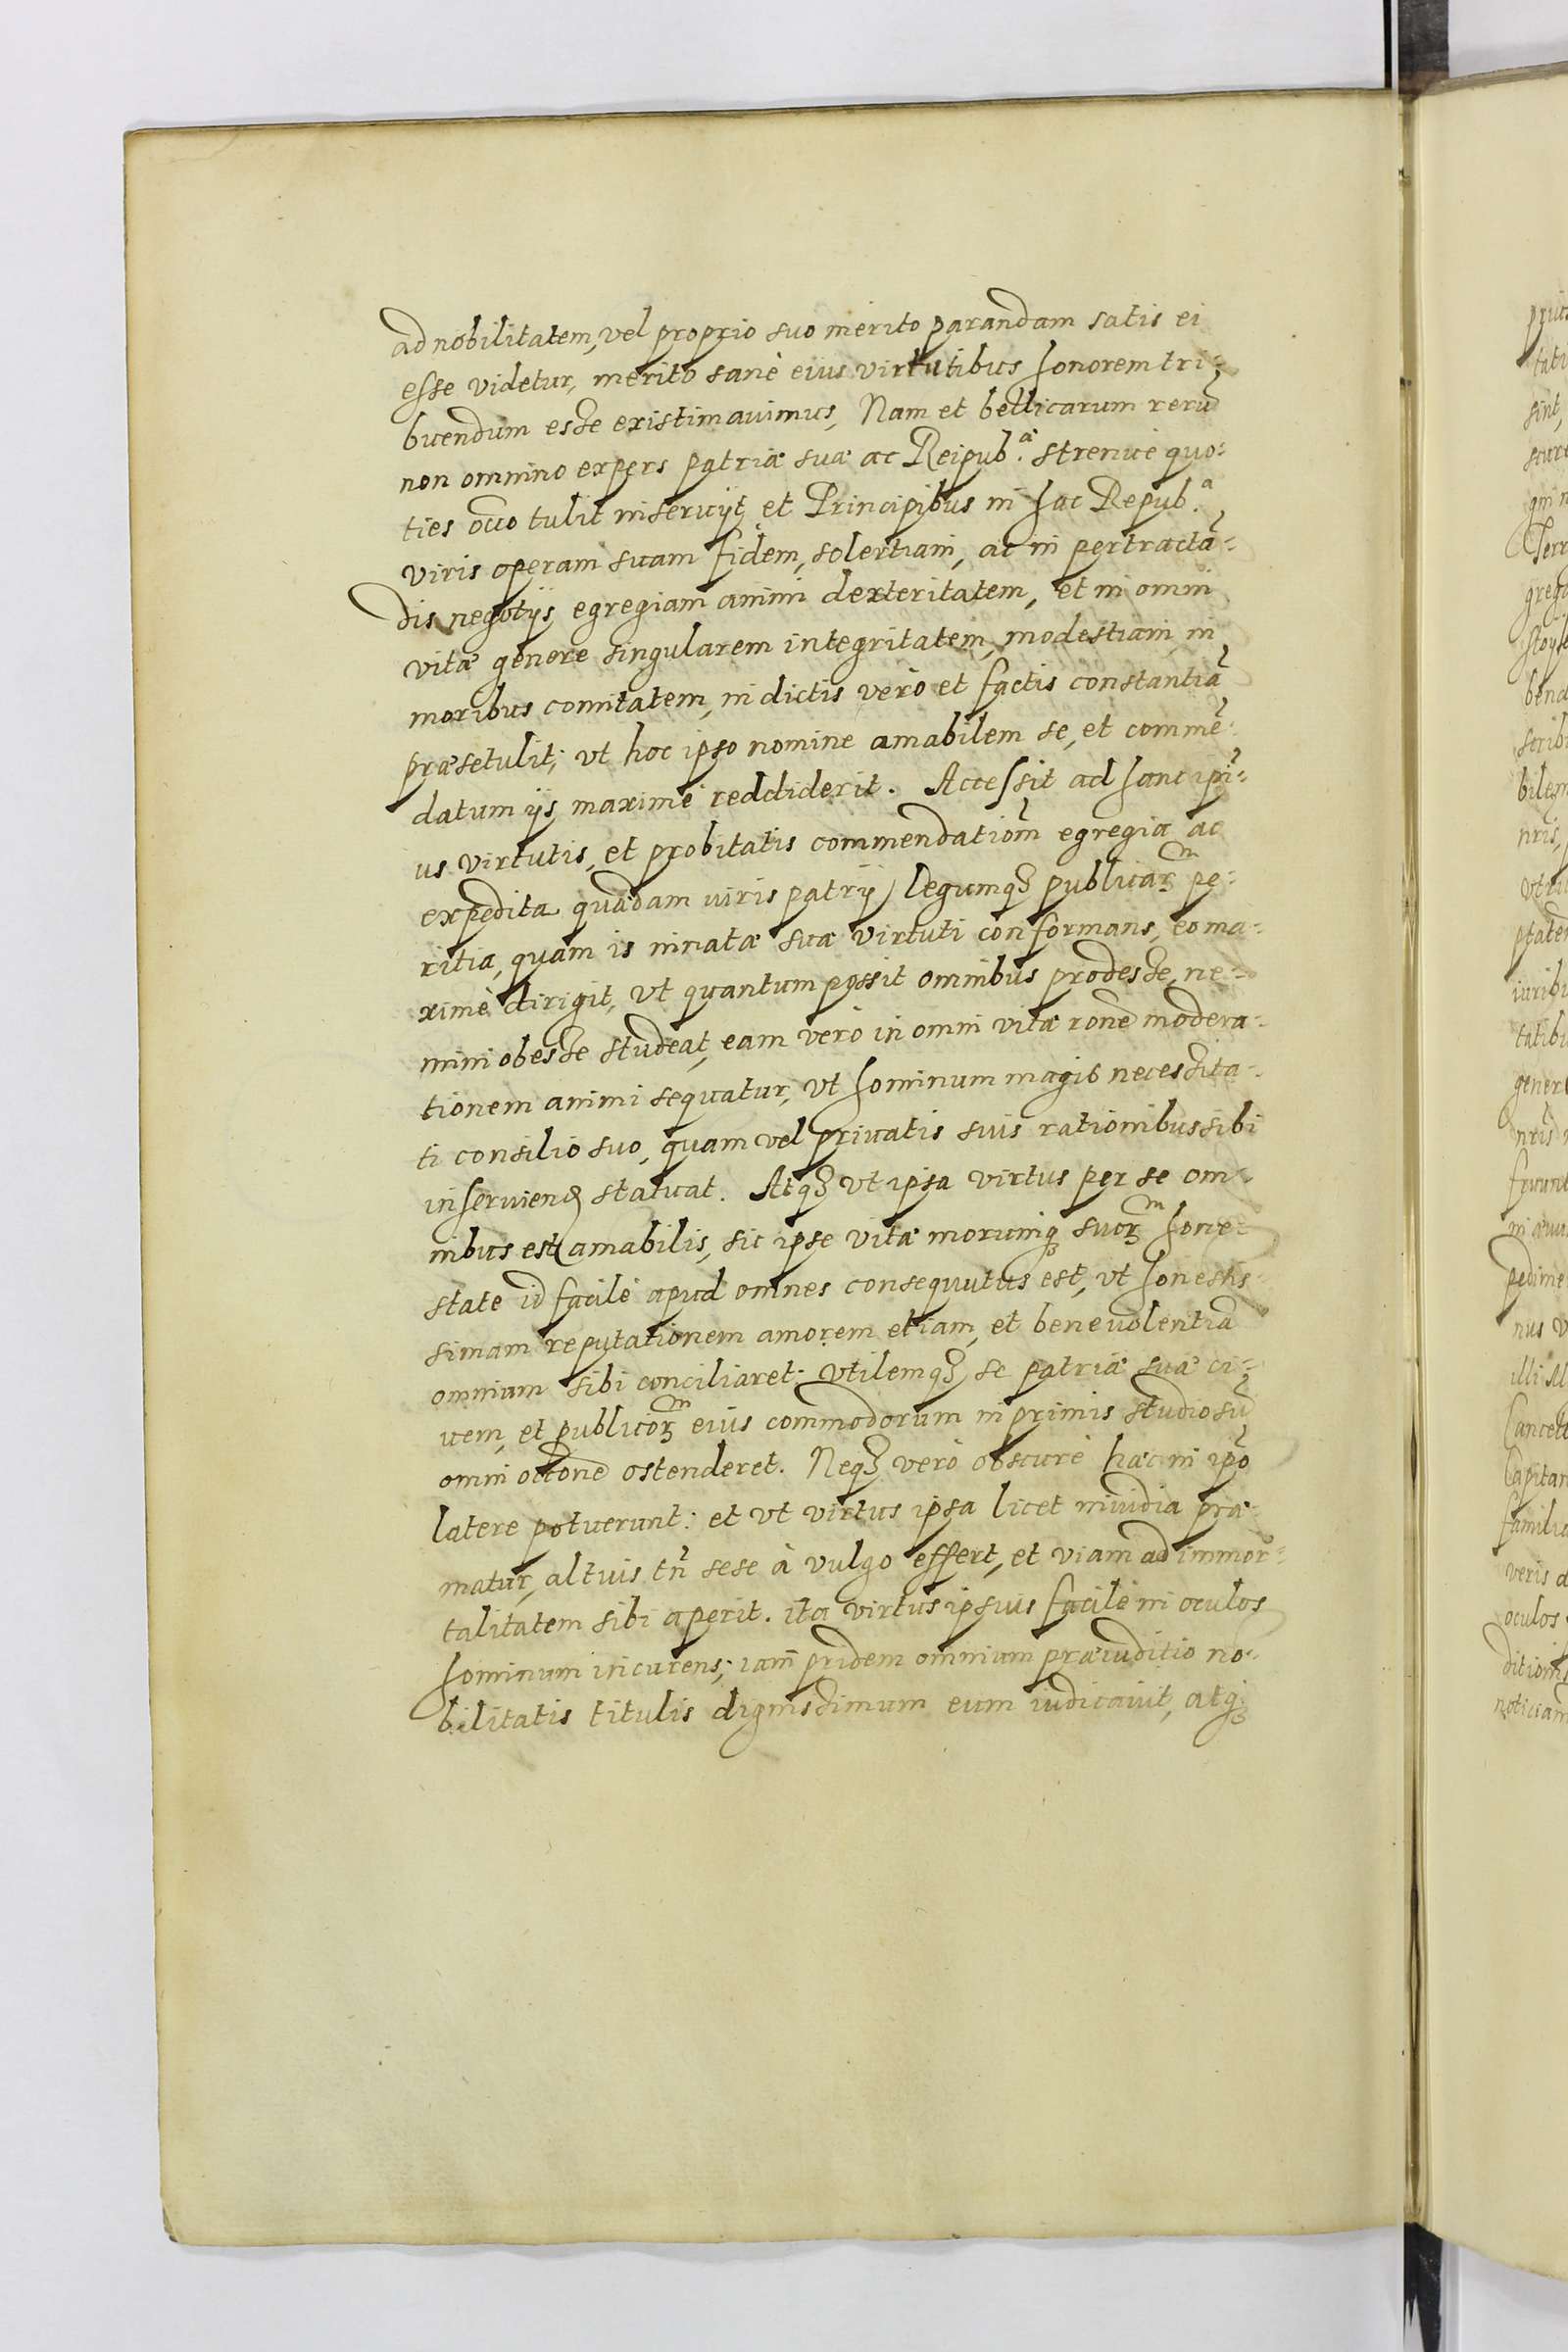 ad nobilitatem, vel proprio suo merito parandam satis ei
esse videtur, merito sanè eius virtutibus honorem tri-
buendum esse existimauimus, Nam et bellicarum rerū
non omnino expers patriæ suæ ac Reipub.æ strenuè quo-
ties occo tulit inseruijt, et Principibus in hac Repub.a
viris operam suam fidem, solertiam, ac in pertractā-
dis negotijs egregiam animi dexteritatem, et in omni
vitæ genere singularem integritatem, modestiam, in
moribus comitatem, in dictis verò et factis constantiā
præsetulit; vt hoc ipso nomine amabilem se, et commē-
datum ijs maximè reddiderit. Accessit ad hanc ipi̅-
us virtutis, et probitatis commendationm̅ egregia ac
expedita quædam iuris patrij Legumqꝫ publicarꝫm pe-
ritia, quam is innatæ suæ virtuti conformans, eo ma-
ximè dirigit, vt quantum possit omnibus prodesse, ne-
mini obesse studeat, eam verò in omni vitæ rōne modera-
tionem animi sequatur, vt hominum magis necessita-
ti consilio suo, quam vel priuatis suis rationibus sibi
inseruiend statuat. Atqꝫ vt ipsa virtus per se om-
nibus est amabilis, sic ipse vitæ morumqꝫ suorꝫm hone-
state id facilè apud omnes consequutus est, vt honestis-
simam reputationem amorem etiam, et beneuolentiā
omnium sibi conciliaret: vtilemqꝫ se patriæ suæ ci-
uem, et publicorꝫm eius commodorum in primis studiosū
omni occōne ostenderet. Neqꝫ verò obscurè hæc in ipō
latere potuerunt: et vt virtus ipsa licet inuidia præ-
matur, altius tn̅ sese à vulgo effert, et viam ad immor-
talitatem sibi aperit. ita virtus ipsius facilè in oculos
hominum incurens; iam pridem omnium præiuditio no-
bilitatis titulis dignissimum eum iudicauit, atqꝫ